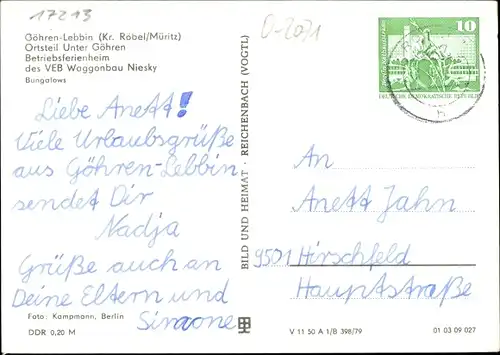 17213
O-2071
Göhren-Lebbin (Kr. Röbel/Müritz)
Ortsteil Unter Göhren
Betriebsferienheim
des VEB Waggonbau Niesky
Bungalows
Liebe Anett!
Viele Urlaubsgrüße
aus Göhren-Lebbin
sendet Dir
Nadja
Grüße auch an
Deine Eltern und
Simone
Foto: Kampmann, Berlin
DDR 0,20 M
BILD UND HEIMAT · REICHENBACH (VOGTL)
10
DEUTSCHE DEMOKRATISCHE REPUBLIK
An
Anett Jahn
9501 Hirschfeld
Hauptstraße
V 11 50 A 1/B 398/79
01 03 09 027